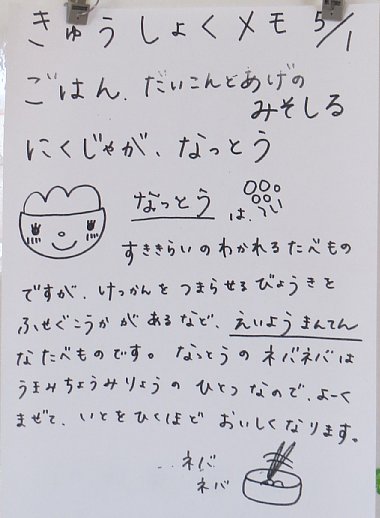 きゅうしょくメモ 5/1
ごはん、だいこんとあげの
みそしる
にくじゃが、なっとう
なっとう は、
すききらいのわかれるたべもの
ですが、けっかんをつまらせるびょうきを
ふせぐこうかがあるなど、えいようまんてん
なたべものです。なっとうのネバネバは
うまみちょうみりょうのひとつなので、よーく
まぜて、いとをひくほどおいしくなります。
…ネバ
ネバ